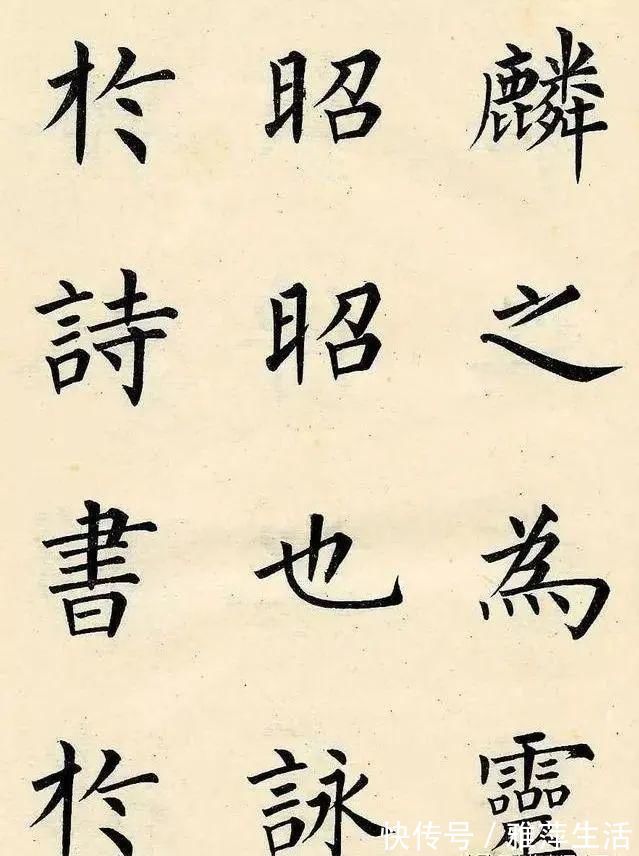 麟之為靈
昭昭也詠
於詩書於
快传号/雅萍生活